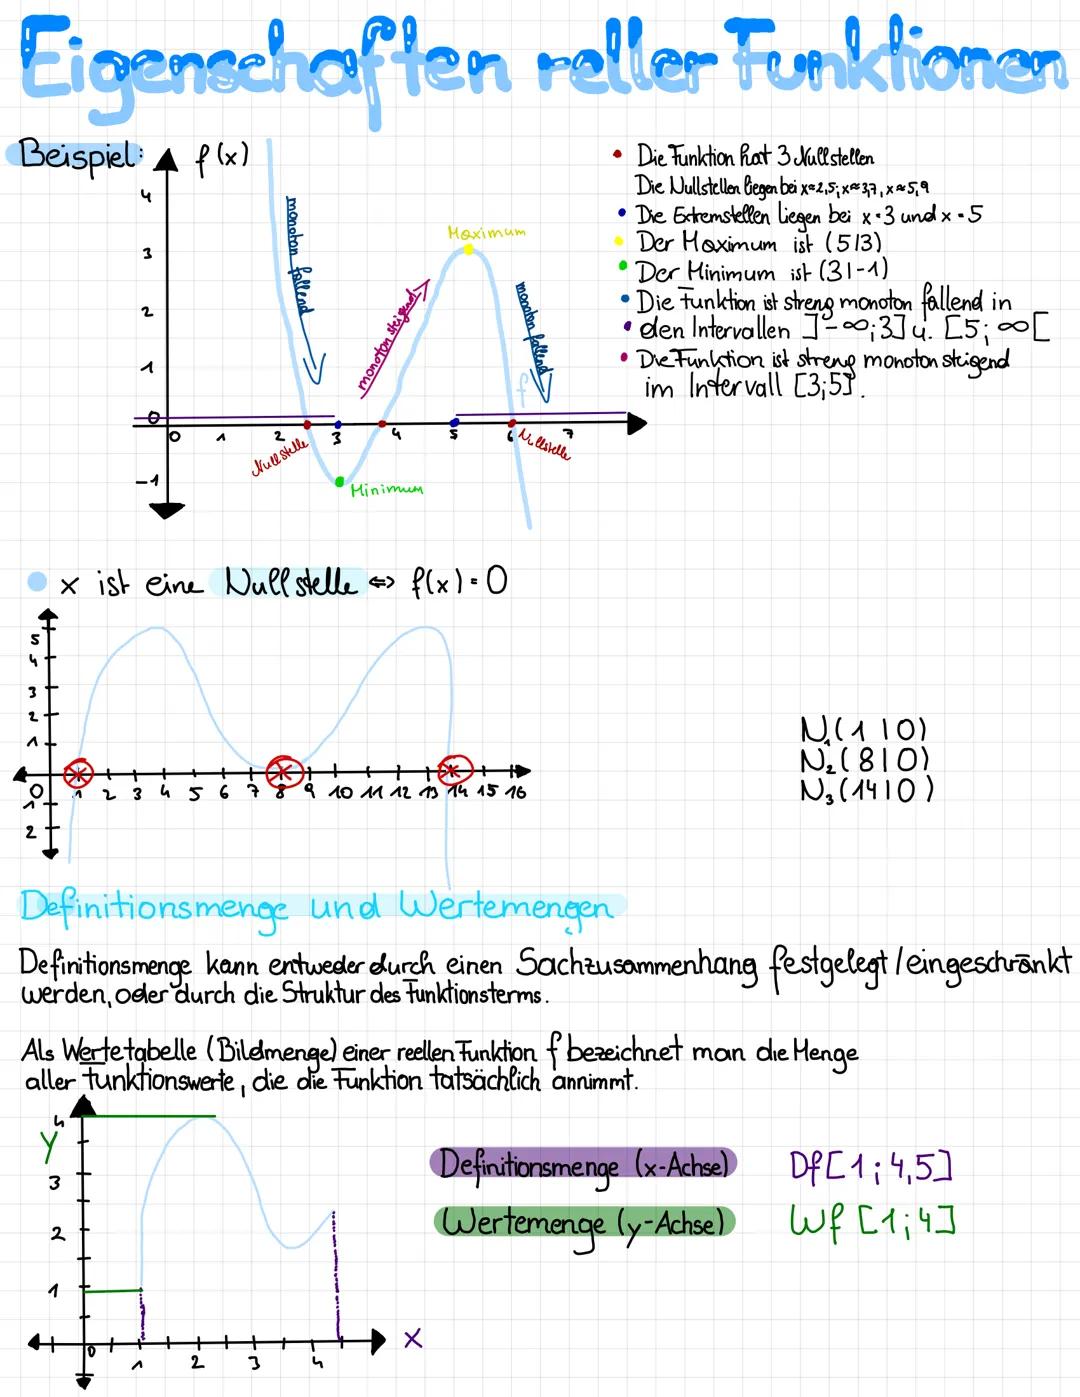 Eigenschaften reller Funktionen
Beispiel:
f(x)
4
3
2
1
0
-1
0 1 2 3 4 5 6 7
monoton fallend
monoton steigend
monoton fallend
Maximum
Minimum
Nullstelle
Nullstelle
f
• Die Funktion hat 3 Nullstellen
Die Nullstellen liegen bei x≈2,5; x≈3,7, x≈5,9
• Die Extremstellen liegen bei x=3 und x=5
• Der Maximum ist (5|3)
• Der Minimum ist (3|-1)
• Die Funktion ist streng monoton fallend in
• den Intervallen ]-∞;3] u. [5; ∞[
• Die Funktion ist streng monoton steigend
im Intervall [3;5].
x ist eine Nullstelle ⇔ f(x)=0
5
4
3
2
1
0 1 2 3 4 5 6 7 8 9 10 11 12 13 14 15 16
1
2
N₁(1|0)
N₂(8|0)
N₃(14|0)
Definitionsmenge und Wertemengen
Definitionsmenge kann entweder durch einen Sachzusammenhang festgelegt/eingeschränkt
werden, oder durch die Struktur des Funktionsterms.
Als Wertetabelle (Bildmenge) einer reellen Funktion f bezeichnet man die Menge
aller Funktionswerte, die die Funktion tatsächlich annimmt.
y
4
3
2
1
0 1 2 3 4
x
Definitionsmenge (x-Achse) Df[1;4,5]
Wertemenge (y-Achse) Wf [1;4]